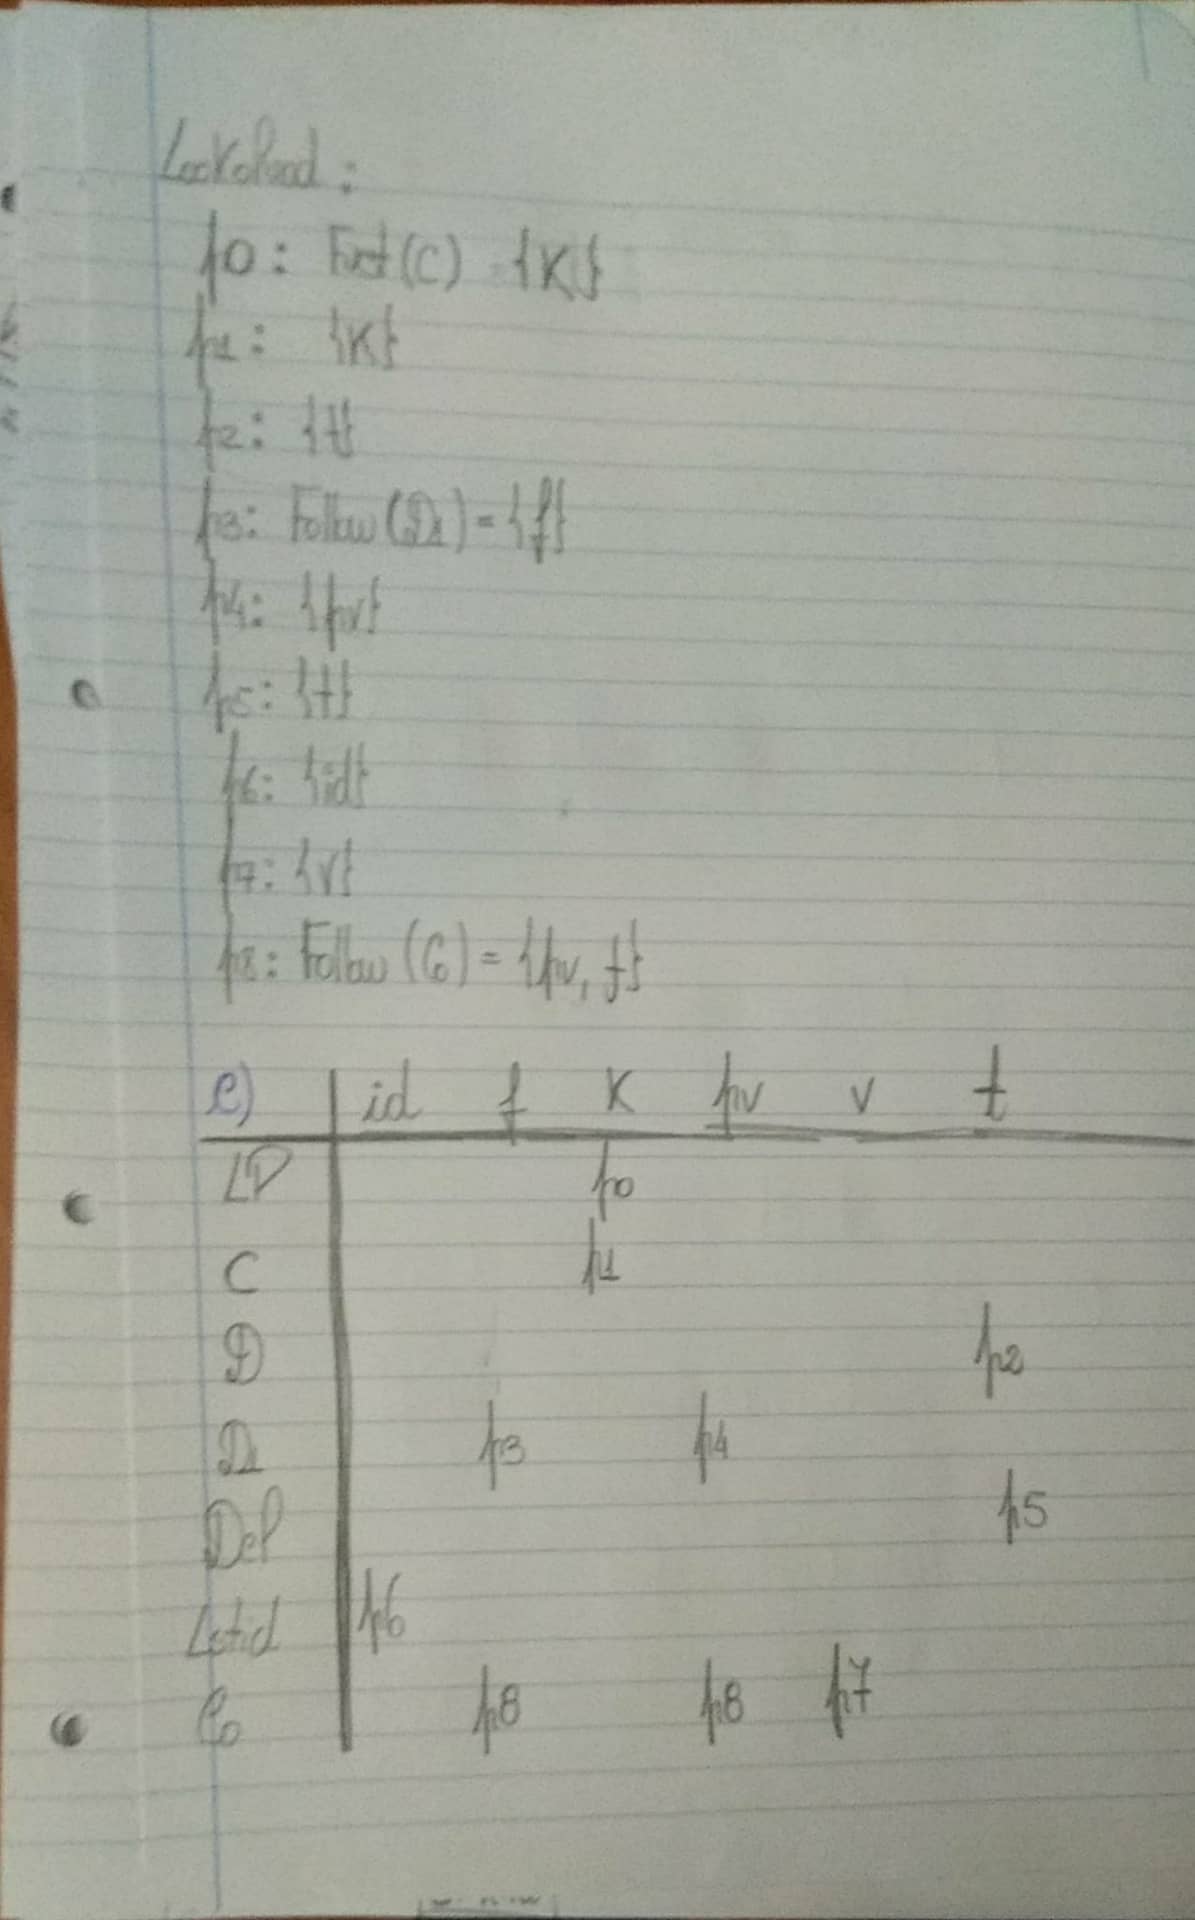 Lookahead:
p0: First(C) {K}
p1: {K}
p2: {t}
p3: Follow(D1) = {f}
p4: {pv}
p5: {t}
p6: {id}
p7: {v}
p8: Follow(Co) = {pv, f}
e) id f K pv v t
LD p0
C p1
D p2
D1 p3 p4
Def p5
Lstid p6
Co p8 p8 p7